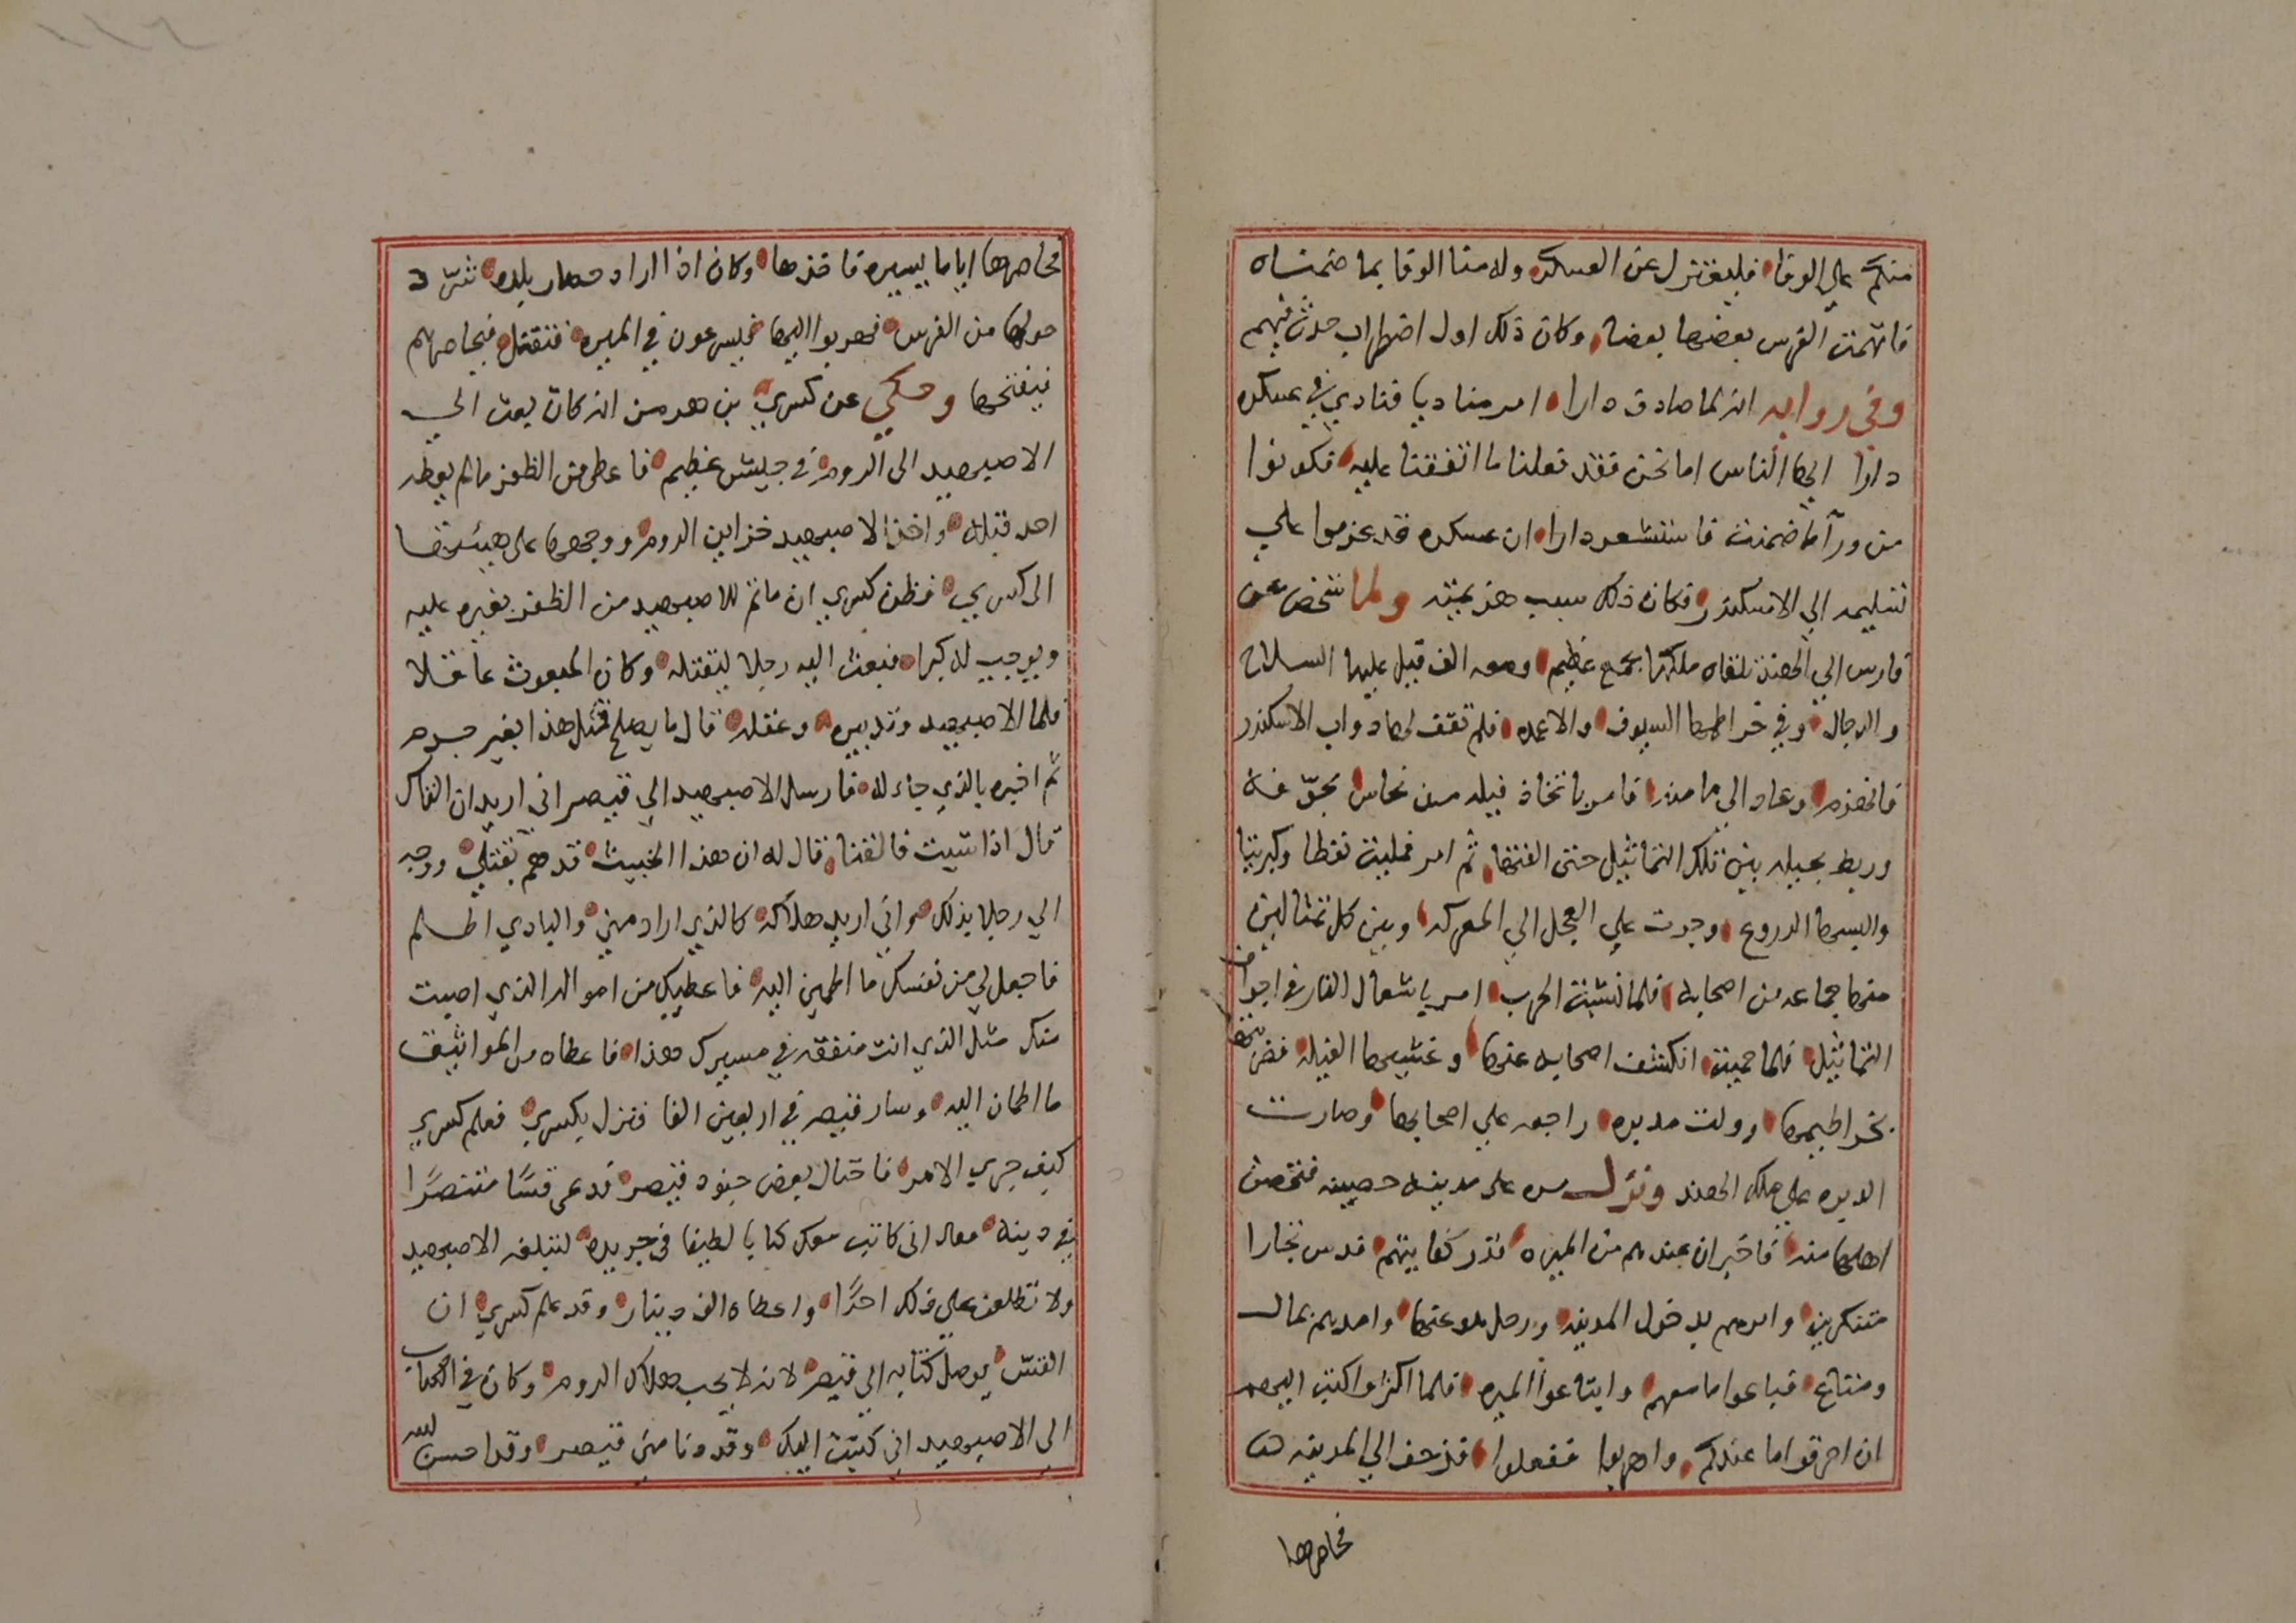 منكم على الوفا فليعتزل عن العسكر وله منا الوفا بما ضمناه
فاتهمت الفرس بعضها بعضا وكان ذلك اول اضطراب حدث فيهم
وفي روايه انه لما صادف دارا امر مناديا فنادى في عسكره
دارا ايها الناس اما نحن فقد فعلنا ما اتفقنا عليه فكونوا
من ورآ ما ضمنت فاستشعر دارا ان عسكره قد عزموا على
تسليمه الى الاسكندر فكان ذلك سبب هزيمته ولما شخص عن
فارس الى الهند تلقاه ملكها بجمع عظيم ومعه الف فيل عليها السلاح
والرجال وفي خراطيمها السيوف والاعمده فلم تقف لها دواب الاسكندر
فانهزم وعاد الى مامنه فامر باتخاذ فيله من نحاس مجوفه
وربط خيله بين تلك التماثيل حتى الفتها ثم امر فمليت نفطا وكبريتا
والبسها الدروع وجرت على العجل الى المعركه وبين كل تمثالين
منها جماعه من اصحابه فلما نشبت الحرب امر باشعال النار في اجواف
التماثيل فلما حميت انكشف اصحابه عنها وغشيها الفيله فضربتها
بخراطيمها وولت مدبره راجعه على اصحابها وصارت
الدبره على ملك الهند ونزل مره على مدينه حصينه فتحصن
اهلها منه فاخبر ان عندهم من الميره قدر كفايتهم فدس تجارا
متنكرين وامرهم بدخول المدينه ورحل عنها وامدهم بمال
ومتاع فباعوا ما معهم وابتاعوا الميره فلما اكثروا كتب اليهم
ان احرقوا ما عندكم واهربوا ففعلوا فزحف الى المدينه
فحاصرها
فحاصرها اياما يسيره فاخذها وكان اذا اراد حصار بلده شرد
حولها من القرى فهربوا اليها فيسرعون في الميره فتقل فيحاصرهم
فيفتحها وحكي عن كسرى بن هرمز انه كان بعث الى
الاصبهبد الى الروم في جيش عظيم فاعطي من الظفر ما لم يعطه
احد قبله واخذ الاصبهبد خزاين الروم ووجهها على هيئتها
الى كسرى فظن كسرى ان ماتم للاصبهبد من الظفر يغيره عليه
ويوجب له كبرا فبعث اليه رجلا ليقتله وكان المبعوث عاقلا
فلما الاصبهبد وتدبيره وعقله قال ما يصلح قتل هذا بغير جرم
ثم اخبره بالذي جاء له فارسل الاصبهبد الى قيصر اني اريد ان القاك
قال اذا شيت فالتقنا فقال له ان هذا الخبيث قد هم بقتلي ووجه
الي رجلا بذلك واني اريد هلاكه كالذي اراد مني والبادي اظلم
فاجعل لي من نفسك ما اطمين اليه فاعطيك من امواله الذي اصبت
منك مثل الذي انت منفقه في مسيرك هذا فاعطاه من المواثيق
ما اطمان اليه وسار قيصر في اربعين الفا فنزل بكسرى فعلم كسرى
كيف جرى الامر فاحتال لبعض جنود قيصر فدعى قسًا متنصرًا
في دينه فقال اني كاتب معك كتابا لطيفا في جريده لتبلغه الاصبهبد
ولا تطلعن على ذلك احدًا واعطاه الف دينار وقد علم كسرى ان
القس يوصل كتابه الى قيصر لانه لا يحب هلاك الروم وكان في الكتاب
الى الاصبهبد اني كتبت اليك وقد دنا مني قيصر وقد احسن الله